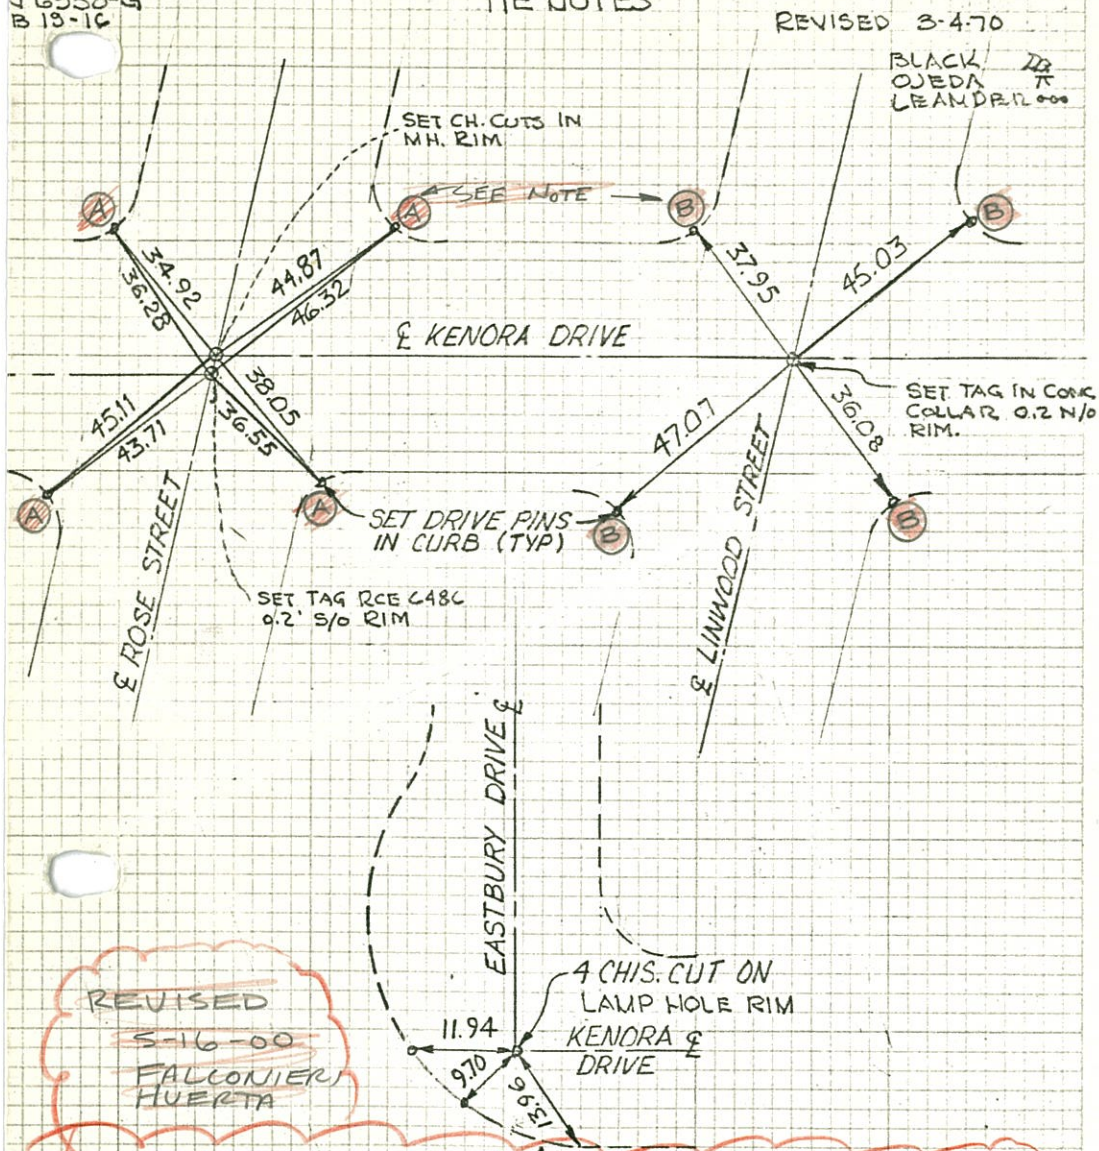 B 13-16
TIE NOTES
REVISED 3-4-70
BLACK
OJEDA π
LEANDER
SET CH. CUTS IN
MH. RIM
A
A
SEE NOTE
B
B
34.92
36.28
44.87
46.32
37.95
45.03
℄ KENORA DRIVE
45.11
43.71
38.05
36.55
47.07
36.08
SET TAG IN CONC
COLLAR 0.2 N/O
RIM.
A
A
SET DRIVE PINS
IN CURB (TYP)
B
B
℄ ROSE STREET
SET TAG RCE 6486
0.2' S/O RIM
℄ LINWOOD STREET
EASTBURY DRIVE ℄
4 CHIS. CUT ON
LAMP HOLE RIM
11.94
KENORA ℄
DRIVE
9.70
13.96
REVISED
5-16-00
FALCONIERI
HUERTA